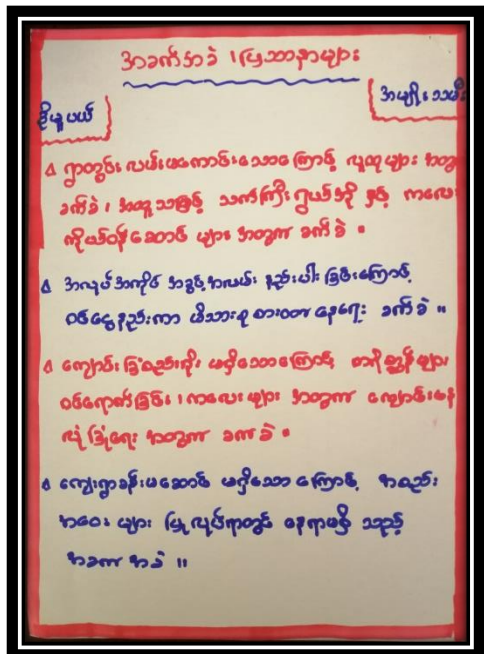 အခက်အခဲ ၊ ပြဿနာများ
အမျိုးသမီး
ရွာတွင်း လမ်းမကောင်းသောကြောင့် လူထုများ အတွ
ခက်ခဲ ၊ အထူးသဖြင့် သက်ကြီးရွယ်အို နှင့် ကလေး
ကိုယ်ဝန်ဆောင် များ အတွက် ခက်ခဲ ။
အလုပ်အကိုင် အခွင့်အလမ်း နည်းပါး ခြင်းကြောင့်
ဝင်ငွေနည်းကာ မိသားစု စားဝတ် နေရေး ခက်ခဲ ။
ကျောင်း ခြံစည်းရိုး မရှိသောကြောင့် တိရိစ္ဆာန်များ
ဝင်ရောက်ခြင်း ၊ ကလေး များ အတွက် ကျောင်းနေ
လုံခြုံရေး အတွက် ခက်ခဲ ။
ကျေးရွာခန်းမဆောင် မရှိသောကြောင့် အစည်း
အဝေး များ ပြုလုပ်ရာတွင် နေရာမရှိ သည့်
အခက် အခဲ ။